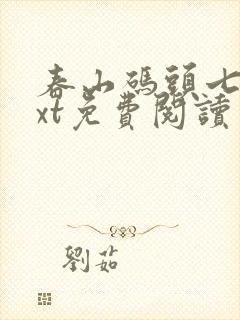 春山碼頭七
xt免費閱讀
劉茹